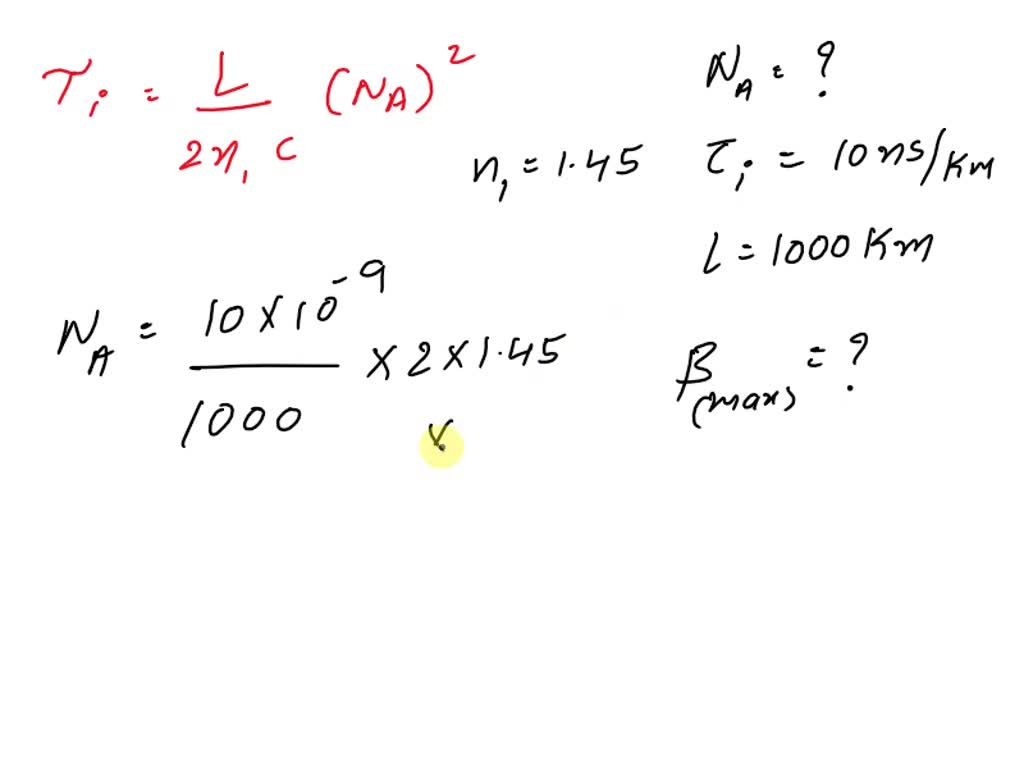 τᵢ = L / 2n₁ c (N_A)²
N_A = ?
n₁ = 1.45
τᵢ = 10 ns/Km
L = 1000 Km
N_A = 10 × 10⁻⁹ / 1000 × 2 × 1.45 ×
β(max) = ?